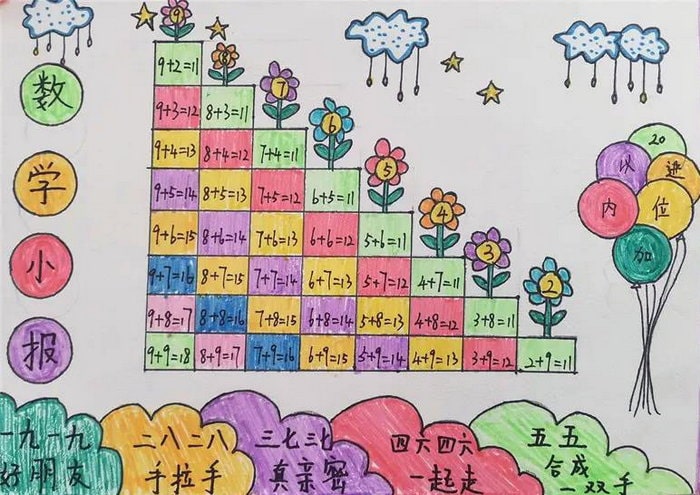 数
学
小
报
9
8
7
6
5
4
3
2
9+2=11
9+3=12 8+3=11
9+4=13 8+4=12 7+4=11
9+5=14 8+5=13 7+5=12 6+5=11
9+6=15 8+6=14 7+6=13 6+6=12 5+6=11
9+7=16 8+7=15 7+7=14 6+7=13 5+7=12 4+7=11
9+8=17 8+8=16 7+8=15 6+8=14 5+8=13 4+8=12 3+8=11
9+9=18 8+9=17 7+9=16 6+9=15 5+9=14 4+9=13 3+9=12 2+9=11
20
以
内
进
位
加
一九一九
好朋友
二八二八
手拉手
三七三七
真亲密
四六四六
一起走
五五
合成
一双手